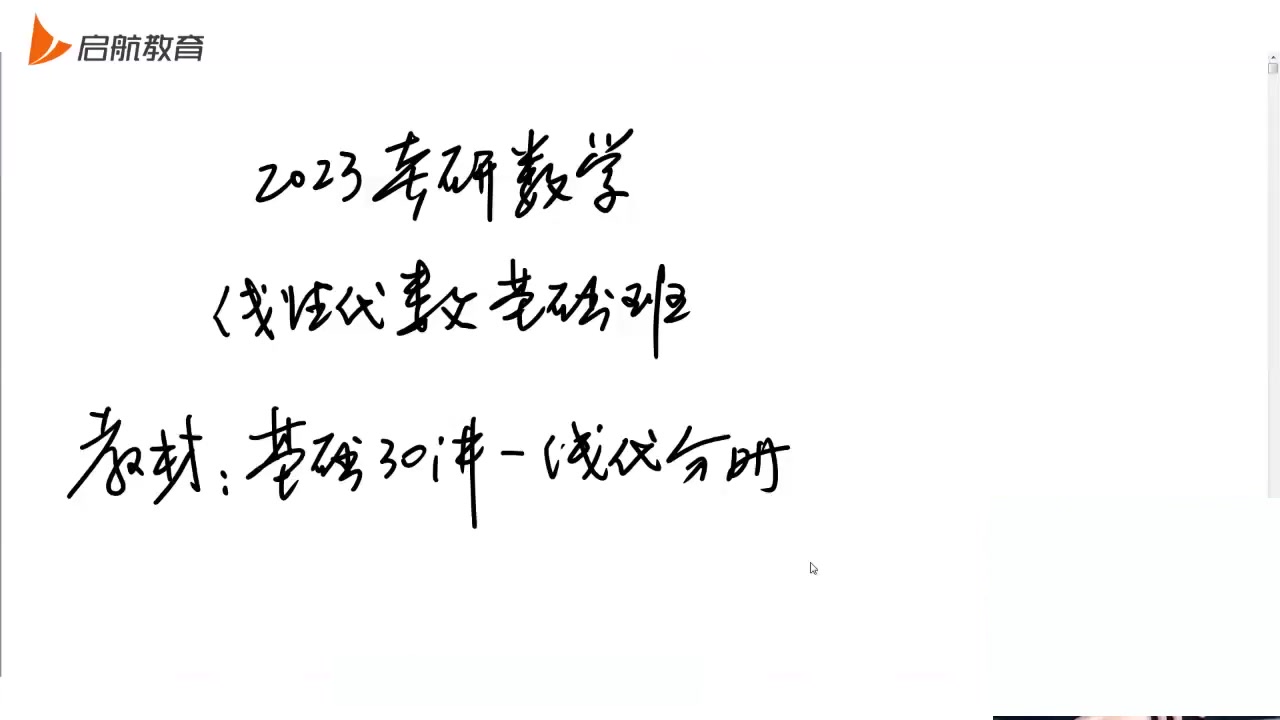 启航教育
2023考研数学
线性代数基础班
教材:基础30讲-线代分册